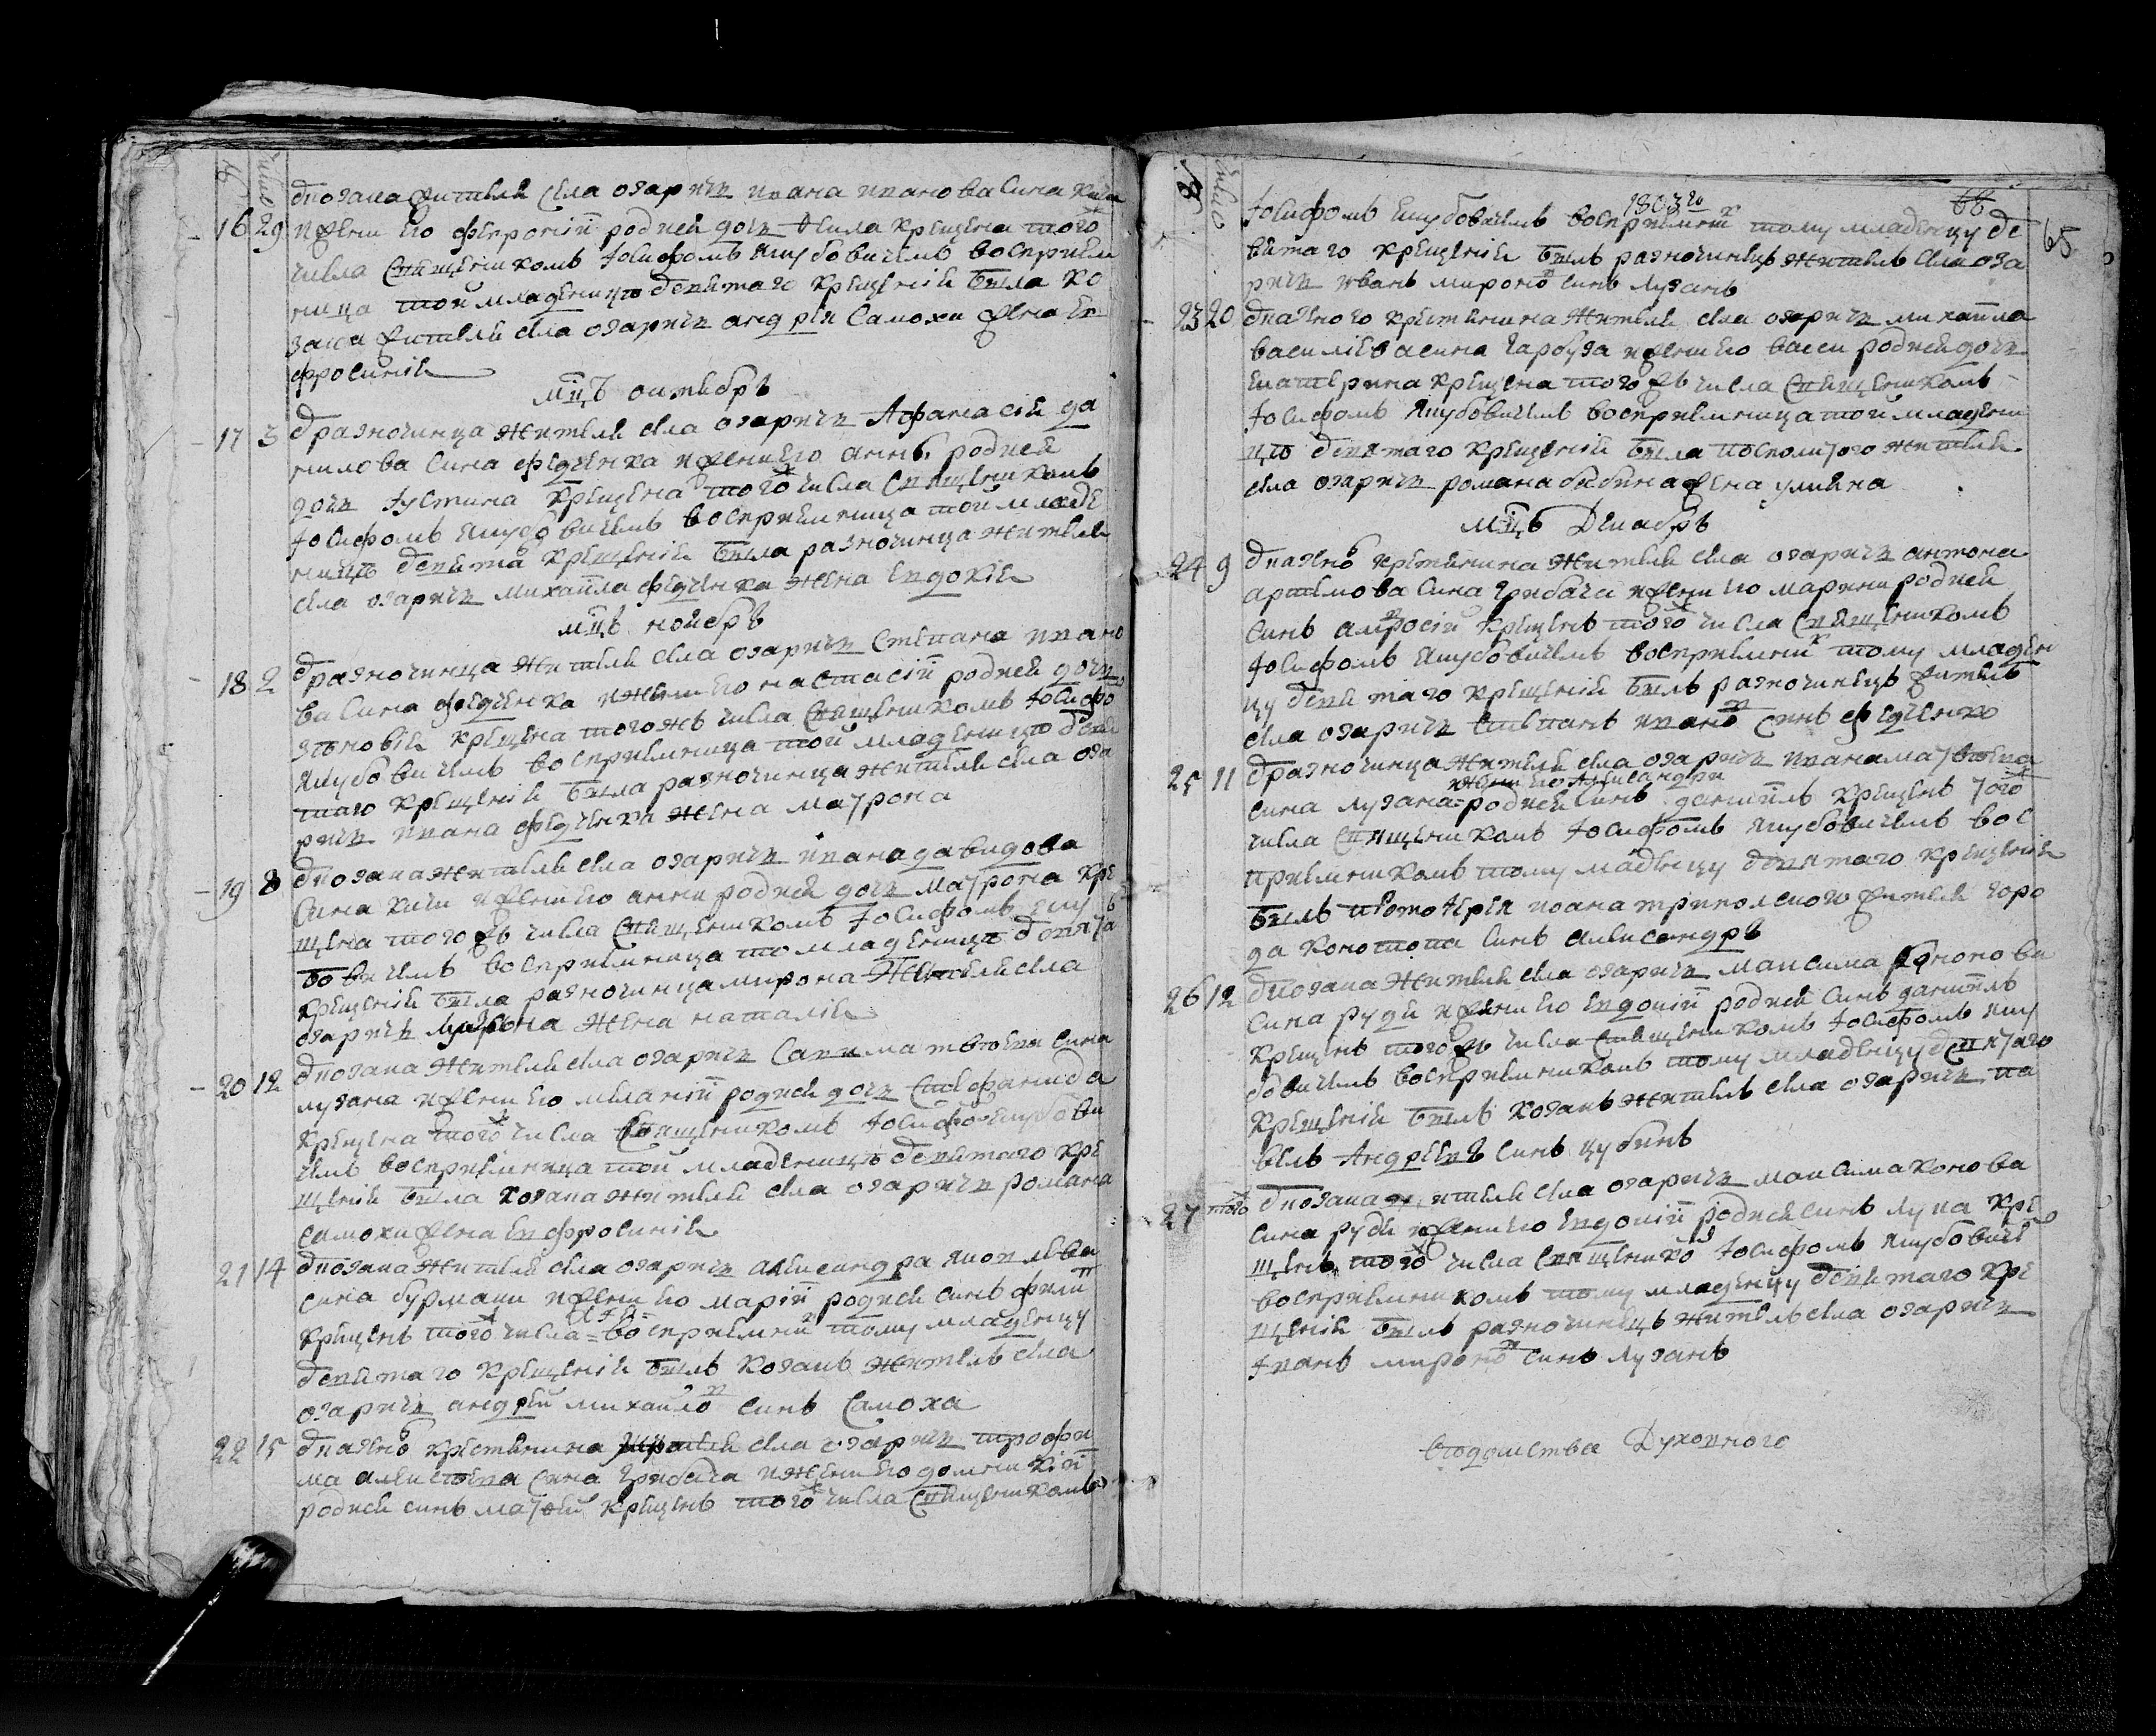 № число
16 29 У козака жителя села озаричъ ивана иванова сина кичи
и жени его февросіи родися дочь Текла крещена того ж
числа священикомъ Іосифомъ якубовичемъ восприем
ница той младеницѣ святаго крещенія была ко
зака жителя села озаричъ андрея Самохи жена ев
фросинія
мцъ октябрь
17 3 У разночинца жителя села озаричъ Афанасія да
нилова сина федченка и жени его анни родися
дочь Іустина крещена того ж числа священикомъ
Іосифомъ якубовичемъ восприемница той младе
ницѣ святаго крещенія была разночинца жителя
села озаричъ михаила федченка жена евдокія
мцъ ноябрь
18 2 У разночинца жителя села озаричъ Степана ивано
ва сина федченка и жени его настасіи родися дочь
зѣновія крещена того жъ числа священикомъ Іосифо
якубовичемъ восприемница той младеницѣ свя
таго крещенія была разночинца жителя села оза
ричъ ивана федченка жена матрона
19 8 У козака жителя села озаричъ ивана давидова
сина кичи и жени его анни родися дочь матрона кре
щена того жъ числа священикомъ Іосифомъ яку
бовичемъ восприемница то младеницѣ свята
крещенія была разночинца мирона жителя села
озаричъ жена наталія
20 12 У козака жителя села озаричъ Сави матвѣева сина
лузана и жени его меланіи родися дочь Стефанида
крещена того ж числа священикомъ Іосифо якубови
чемъ восприемница той младеницѣ святаго кре
щенія была козака жителя села озаричъ романа
самохи жена евфросинія
21 14 У козака жителя села озаричъ александра яковлева
сина бурмаки и жени его маріи родися синъ филип
крещенъ того ж числа = восприемник тому младенцу
святаго крещенія былъ козакъ житель села
озаричъ андрей михайлов синъ Самоха
22 15 У казено крестянина жителя села озаричъ трофи
ма алексѣева сина грибача и жени его доминикіи
родися синъ матѳей крещенъ того ж числа священикомъ
1803го
66
65
№ число
Іосифомъ якубовичемъ восприемник тому младенцу св
ятаго крещенія былъ разночинецъ житель села оза
ричъ иванъ миронов синъ лузанъ
23 20 У казеного крестянина жителя села озаричъ михаила
василіева сина гарбуза и жени его васси родися дочь
екатерина крещена того жъ числа священикомъ
Іосифомъ якубовичемъ восприемница той младени
цѣ святаго крещенія была посполитого жителя
села озаричъ романа бабича жена улияна
мцъ Декабрь
24 9 У казено крестянина жителя села озаричъ антона
артемова сина грибача и жени его марини родися
синъ амвросій крещенъ того ж числа священикомъ
Іосифомъ якубовичемъ восприемник тому младен
цу святаго крещенія былъ разночинецъ житель
села озаричъ степанъ иванов синъ федченко
25 11 У разночинца жителя села озаричъ ивана матвѣева
и жени его Александри
сина лузана = родися синъ даниилъ крещенъ того ж
числа священикомъ Іосифомъ якубовичемъ вос
приемникомъ тому младенцу святаго крещенія
былъ протоіерея иоана трипольского жителя горо
да конотопа синъ александръ
26 12 У козака жителя села озаричъ максима кононова
сина руди и жени его евдокіи родися синъ даниилъ
крещенъ того жъ числа священикомъ Іосифомъ яку
бовичемъ восприемникомъ тому младенцу святаго
крещенія былъ козакъ житель села озаричъ па
велъ Андреевъ синъ цубинъ
27 того ж У козака жителя села озаричъ максима конова
сина руди и жени его евдокіи родися синъ лука кре
щенъ того ж числа священиком Іосифомъ якубовиче
восприемникомъ тому младенцу святаго кре
щенія былъ разночинецъ житель села озаричъ
Іванъ миронов синъ лузанъ
Вѣдомства Духовного